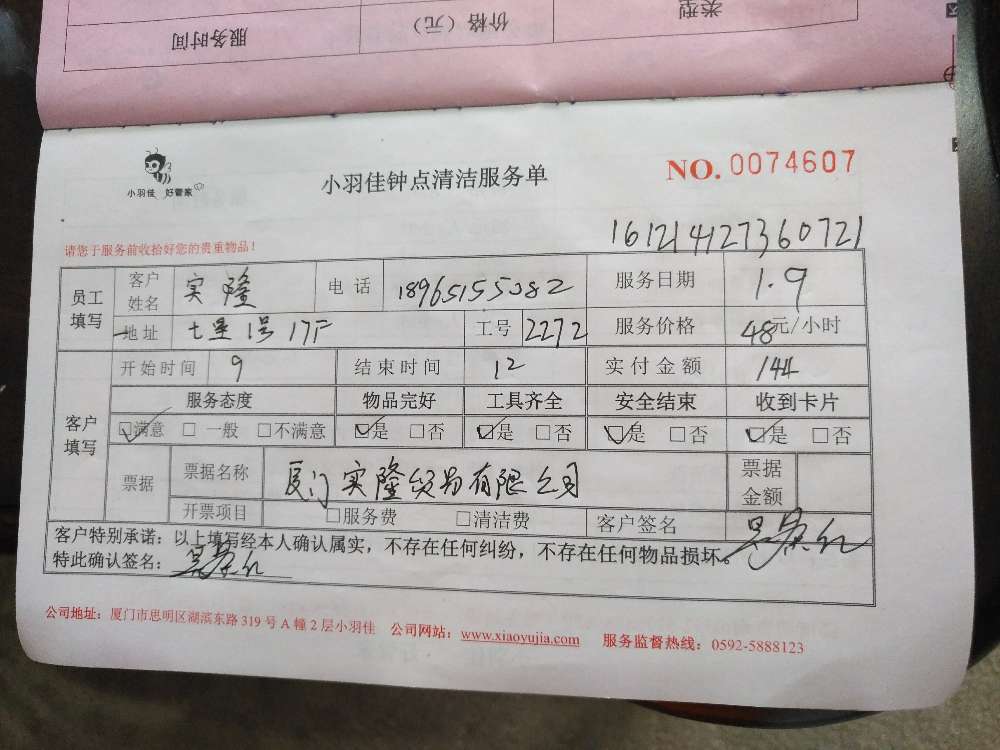 类型 价格（元） 服务时间
小羽佳 好管家
小羽佳钟点清洁服务单
NO. 0074607
161214127360721
请您于服务前收拾好您的贵重物品！
员工填写 客户姓名 实隆 电话 18965155382 服务日期 1.9
地址 七星1号17F 工号 2272 服务价格 48元/小时
客户填写 开始时间 9 结束时间 12 实付金额 144
服务态度 物品完好 工具齐全 安全结束 收到卡片
☑满意 □一般 □不满意 ☑是 □否 ☑是 □否 ☑是 □否 ☑是 □否
票据 票据名称 厦门实隆贸易有限公司 票据金额
开票项目 □服务费 □清洁费 客户签名
客户特别承诺：以上填写经本人确认属实，不存在任何纠纷，不存在任何物品损坏。
特此确认签名：
公司地址：厦门市思明区湖滨东路 319 号 A 幢 2 层小羽佳 公司网站：www.xiaoyujia.com 服务监督热线：0592-5888123